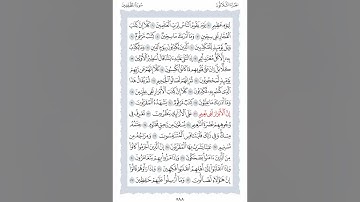 الجزء الثلاثون سورة المطففين
لِيَوْمٍ عَظِيمٍ ٥ يَوْمَ يَقُومُ ٱلنَّاسُ لِرَبِّ ٱلْعَٰلَمِينَ ٦ كَلَّآ إِنَّ كِتَٰبَ
ٱلْفُجَّارِ لَفِى سِجِّينٍ ٧ وَمَآ أَدْرَىٰكَ مَا سِجِّينٌ ٨ كِتَٰبٌ مَّرْقُومٌ ٩
وَيْلٌ يَوْمَئِذٍ لِّلْمُكَذِّبِينَ ١٠ ٱلَّذِينَ يُكَذِّبُونَ بِيَوْمِ ٱلدِّينِ ١١ وَمَا
يُكَذِّبُ بِهِۦٓ إِلَّا كُلُّ مُعْتَدٍ أَثِيمٍ ١٢ إِذَا تُتْلَىٰ عَلَيْهِ ءَايَٰتُنَا قَالَ أَسَٰطِيرُ
ٱلْأَوَّلِينَ ١٣ كَلَّا بَلْ رَانَ عَلَىٰ قُلُوبِهِم مَّا كَانُوا۟ يَكْسِبُونَ ١٤ كَلَّآ إِنَّهُمْ عَن رَّبِّهِمْ
يَوْمَئِذٍ لَّمَحْجُوبُونَ ١٥ ثُمَّ إِنَّهُمْ لَصَالُوا۟ ٱلْجَحِيمِ ١٦ ثُمَّ يُقَالُ هَٰذَا
ٱلَّذِى كُنتُم بِهِۦ تُكَذِّبُونَ ١٧ كَلَّآ إِنَّ كِتَٰبَ ٱلْأَبْرَارِ لَفِى عِلِّيِّينَ ١٨
وَمَآ أَدْرَىٰكَ مَا عِلِّيُّونَ ١٩ كِتَٰبٌ مَّرْقُومٌ ٢٠ يَشْهَدُهُ ٱلْمُقَرَّبُونَ ٢١
إِنَّ ٱلْأَبْرَارَ لَفِى نَعِيمٍ ٢٢ عَلَى ٱلْأَرَآئِكِ يَنظُرُونَ ٢٣ تَعْرِفُ فِى
وُجُوهِهِمْ نَضْرَةَ ٱلنَّعِيمِ ٢٤ يُسْقَوْنَ مِن رَّحِيقٍ مَّخْتُومٍ ٢٥
خِتَٰمُهُۥ مِسْكٌ وَفِى ذَٰلِكَ فَلْيَتَنَافَسِ ٱلْمُتَنَٰفِسُونَ ٢٦ وَمِزَاجُهُۥ مِن
تَسْنِيمٍ ٢٧ عَيْنًا يَشْرَبُ بِهَا ٱلْمُقَرَّبُونَ ٢٨ إِنَّ ٱلَّذِينَ أَجْرَمُوا۟ كَانُوا۟
مِنَ ٱلَّذِينَ ءَامَنُوا۟ يَضْحَكُونَ ٢٩ وَإِذَا مَرُّوا۟ بِهِمْ يَتَغَامَزُونَ ٣٠
وَإِذَا ٱنقَلَبُوٓا۟ إِلَىٰٓ أَهْلِهِمُ ٱنقَلَبُوا۟ فَكِهِينَ ٣١ وَإِذَا رَأَوْهُمْ قَالُوٓا۟
إِنَّ هَٰٓؤُلَآءِ لَضَآلُّونَ ٣٢ وَمَآ أُرْسِلُوا۟ عَلَيْهِمْ حَٰفِظِينَ ٣٣
٥٨٨